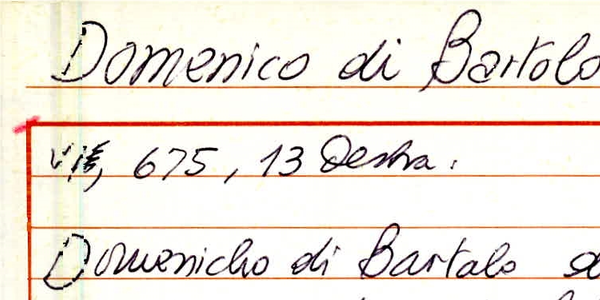 Domenico di Bartolo
VII, 675, 13 Destra.
Domenicho di Bartalo